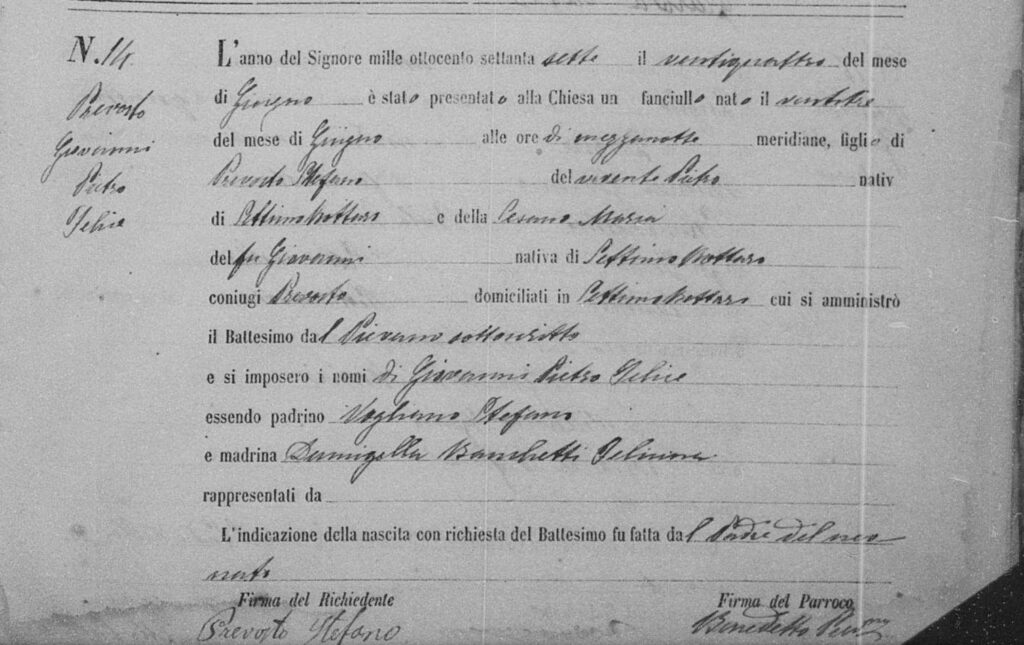 N. 14.
Prevosto
Giovanni
Pietro
Felice
L'anno del Signore mille ottocento settanta sette il ventiquattro del mese
di Giugno è stato presentato alla Chiesa un fanciullo nato il ventitre
del mese di Giugno alle ore di mezzanotte meridiane, figlio di
Prevosto Stefano del vivente Pietro nativ
di Pettinato Rottaro e della Cesano Maria
del fu Giovanni nativa di
coniugi Prevosto domiciliati in cui si amministrò
il Battesimo dal Pievano sottoscritto
e si imposero i nomi di Giovanni Pietro Felice
essendo padrino Vogliano Stefano
e madrina Damigella Banchetti
rappresentati da
L'indicazione della nascita con richiesta del Battesimo fu fatta dal Padre del neo
nato
Firma del Richiedente Firma del Parroco
Prevosto Stefano Benedetto